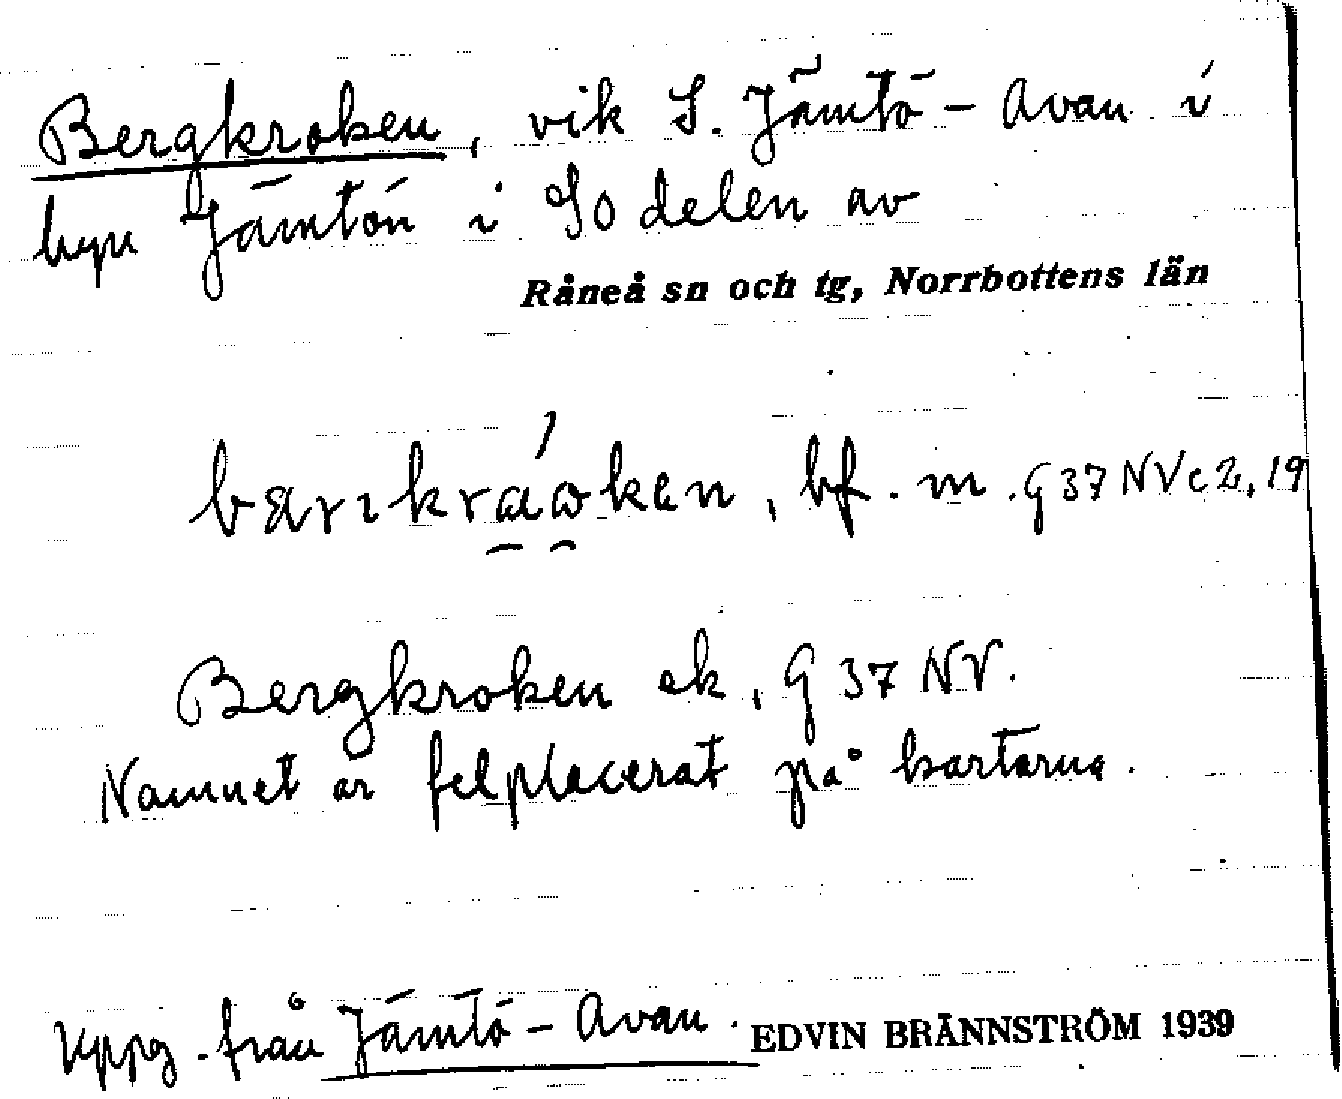 Bergkroken, vik S. Jämtö-Avan i
byn Jämtön i So delen av
Råneå sn och tg, Norrbottens län
bf. m. G 37 NV c 2, 19
Bergkroken ek, G 37 NV.
Namnet är felplacerat på kartorna.
Uppg. från Jämtö-Avan. EDVIN BRÄNNSTRÖM 1939